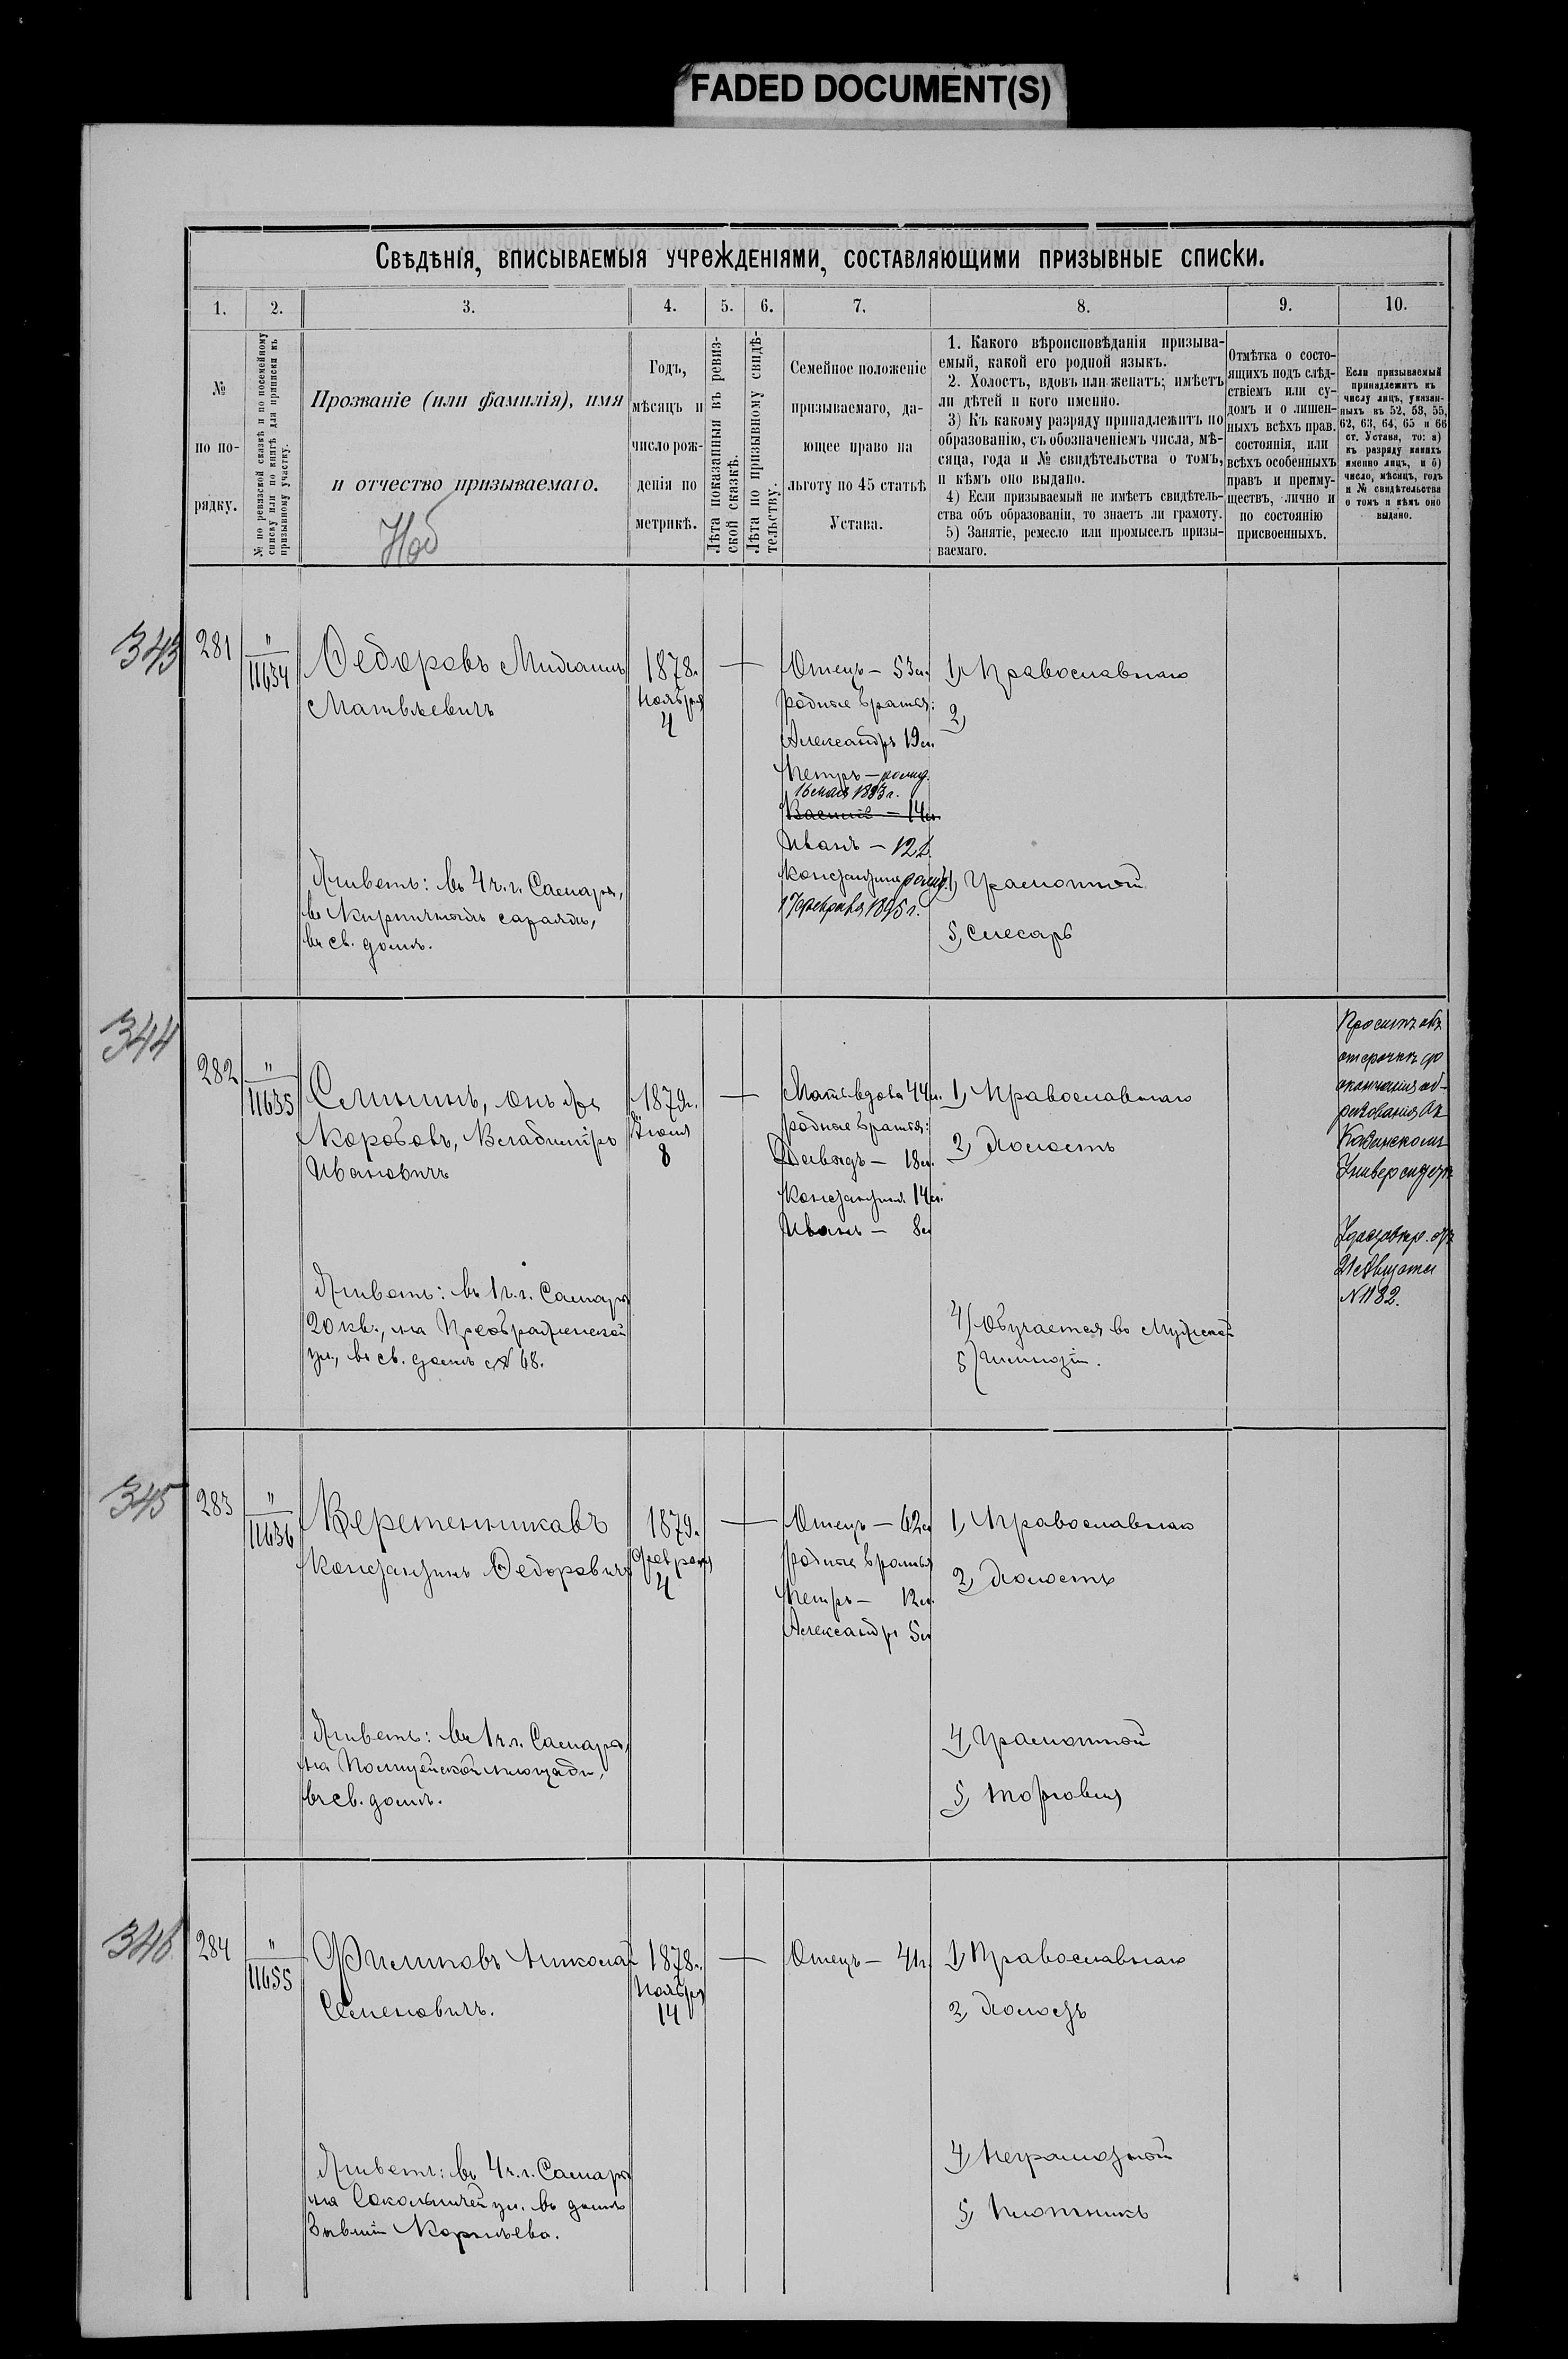 FADED DOCUMENT(S)
Свѣдѣнія, вписываемыя учрежденіями, составляющими призывные списки.
1. 2. 3. 4. 5. 6. 7. 8. 9. 10.
№
по по-
рядку.
№ по ревизской сказкѣ и по посемейному
списку или по книгѣ для приписки къ
призывному участку.
Прозваніе (или фамилія), имя
и отчество призываемаго.
Годъ,
мѣсяцъ и
число рож-
денія по
метрикѣ.
Лѣта показанныя въ ревиз-
ской сказкѣ.
Лѣта по призывному свидѣ-
тельству.
Семейное положеніе
призываемаго, да-
ющее право на
льготу по 45 статьѣ
Устава.
1. Какого вѣроисповѣданія призыва-
емый, какой его родной языкъ.
2. Холостъ, вдовъ или женатъ; имѣетъ
ли дѣтей и кого именно.
3) Къ какому разряду принадлежитъ по
образованію, съ обозначеніемъ числа, мѣ-
сяца, года и № свидѣтельства о томъ,
и кѣмъ оно выдано.
4) Если призываемый не имѣетъ свидѣтель-
ства объ образованіи, то знаетъ ли грамоту.
5) Занятіе, ремесло или промыселъ призы-
ваемаго.
Отмѣтка о состо-
ящихъ подъ слѣд-
ствіемъ или су-
домъ и о лишен-
ныхъ всѣхъ прав.
состоянія, или
всѣхъ особенныхъ
правъ и преиму-
ществъ, лично и
по состоянію
присвоенныхъ.
Если призываемый
принадлежитъ къ
числу лицъ, указан-
ныхъ въ 52, 53, 55,
62, 63, 64, 65 и 66
ст. Устава, то: а)
къ разряду какихъ
именно лицъ, и б)
число, мѣсяцъ, годъ
и № свидѣтельства
о томъ и кѣмъ оно
выдано.
343
281
"
11634
Федоровъ Михаилъ
Матвѣевичъ
1878.
Ноября
4
Отецъ — 53 л.
родные братья:
Александръ 19 л.
Петръ — родил.
16 мая 1883 г.
Василій — 14 л.
Иванъ — 12 л.
Константинъ родил.
17 февраля 1895 г.
1, Православнаго
2,
Грамотной
5, Слесарь
Живетъ: въ 4 ч. г. Самары,
въ Кирпичныхъ сараяхъ,
въ св. домѣ.
344
282
"
11635
Селининъ, онъ же
Коробовъ, Владиміръ
Ивановичъ
1879.
Іюля
8
Мать вдова 44 л.
родные братья:
Давыдъ — 18 л.
Константинъ 14 л.
Иванъ — 8 л
1, Православнаго
2, Холостъ
4) Обучается въ Мужской
5) Гимназіи.
Проситъ объ
отсрочкѣ до
окончанія об-
разованія въ
Казанскомъ
Университетѣ
Удостовѣр. отъ
21 Августа
N 1182.
Живетъ: въ 1 ч. г. Самары
20 кв., на Преображенской
ул., въ св. домѣ № 68.
345
283
"
11636
Веретенниковъ
Константинъ Федоровичъ
1879.
Февраля
4
Отецъ — 62 л
родные братья
Петръ — 12 л.
Александръ 5 л
1, Православнаго
2, Холостъ
4, Грамотной
5, Торговля
Живетъ: въ 1 ч. г. Самары,
на Полицейской площади,
въ св. домѣ.
346
284
"
11655
Филиповъ Николай
Семеновичъ.
1878.
Ноября
14
Отецъ — 41 г.
1, Православнаго
2, Холостъ
4, Неграмотной
5, Плотникъ
Живетъ: въ 4 ч. г. Самары
на Сокольничей ул. въ домѣ
Корнѣева.